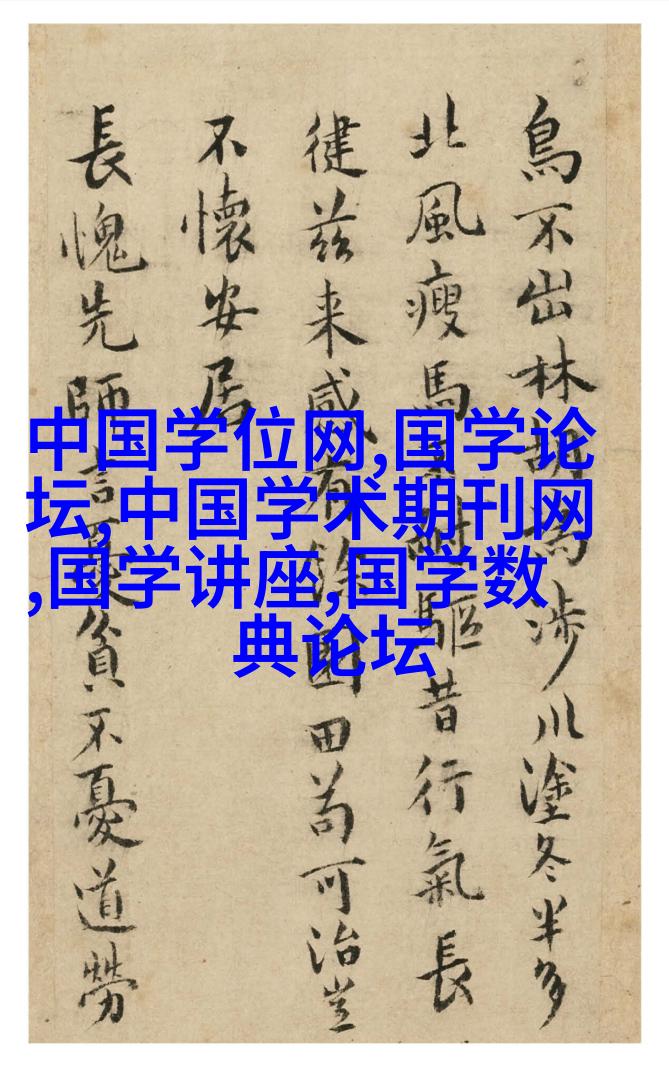 鳥不出林胡為涉川塗冬半多
北風瘦馬耐驅昔行氣長
健茲来感有餘園田苟可治豈
不懷安居
長愧先師言憂貧不憂道勞
中国学位网,国学论
坛,中国学术期刊网
,国学讲座,国学数
典论坛